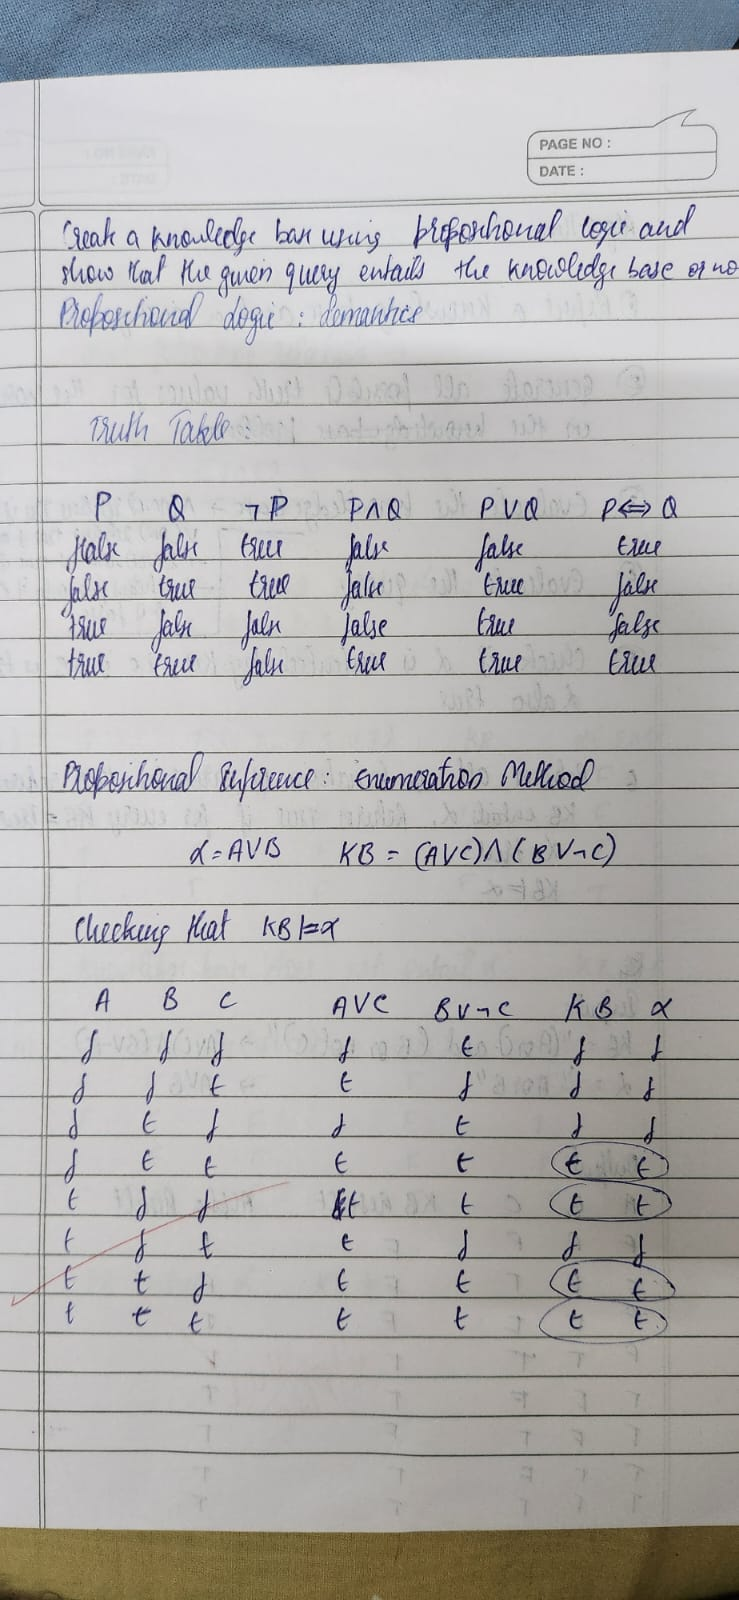 PAGE NO :
DATE :
Create a knowledge base using propositional logic and
show that the given query entails the knowledge base or no
Propositional Logic : Semantics
Truth Table :
P Q ¬P P∧Q P∨Q P⇔Q
false false true false false true
false true true false true false
true false false false true false
true true false true true true
Propositional Inference : Enumeration Method
α = A∨B KB = (A∨C)∧(B∨¬C)
Checking that KB⊨α
A B C A∨C B∨¬C KB α
f f f f t f f
f f t t f f f
f t f f t f f
f t t t t t t
t f f t t t t
t f t t f f f
t t f t t t t
t t t t t t t